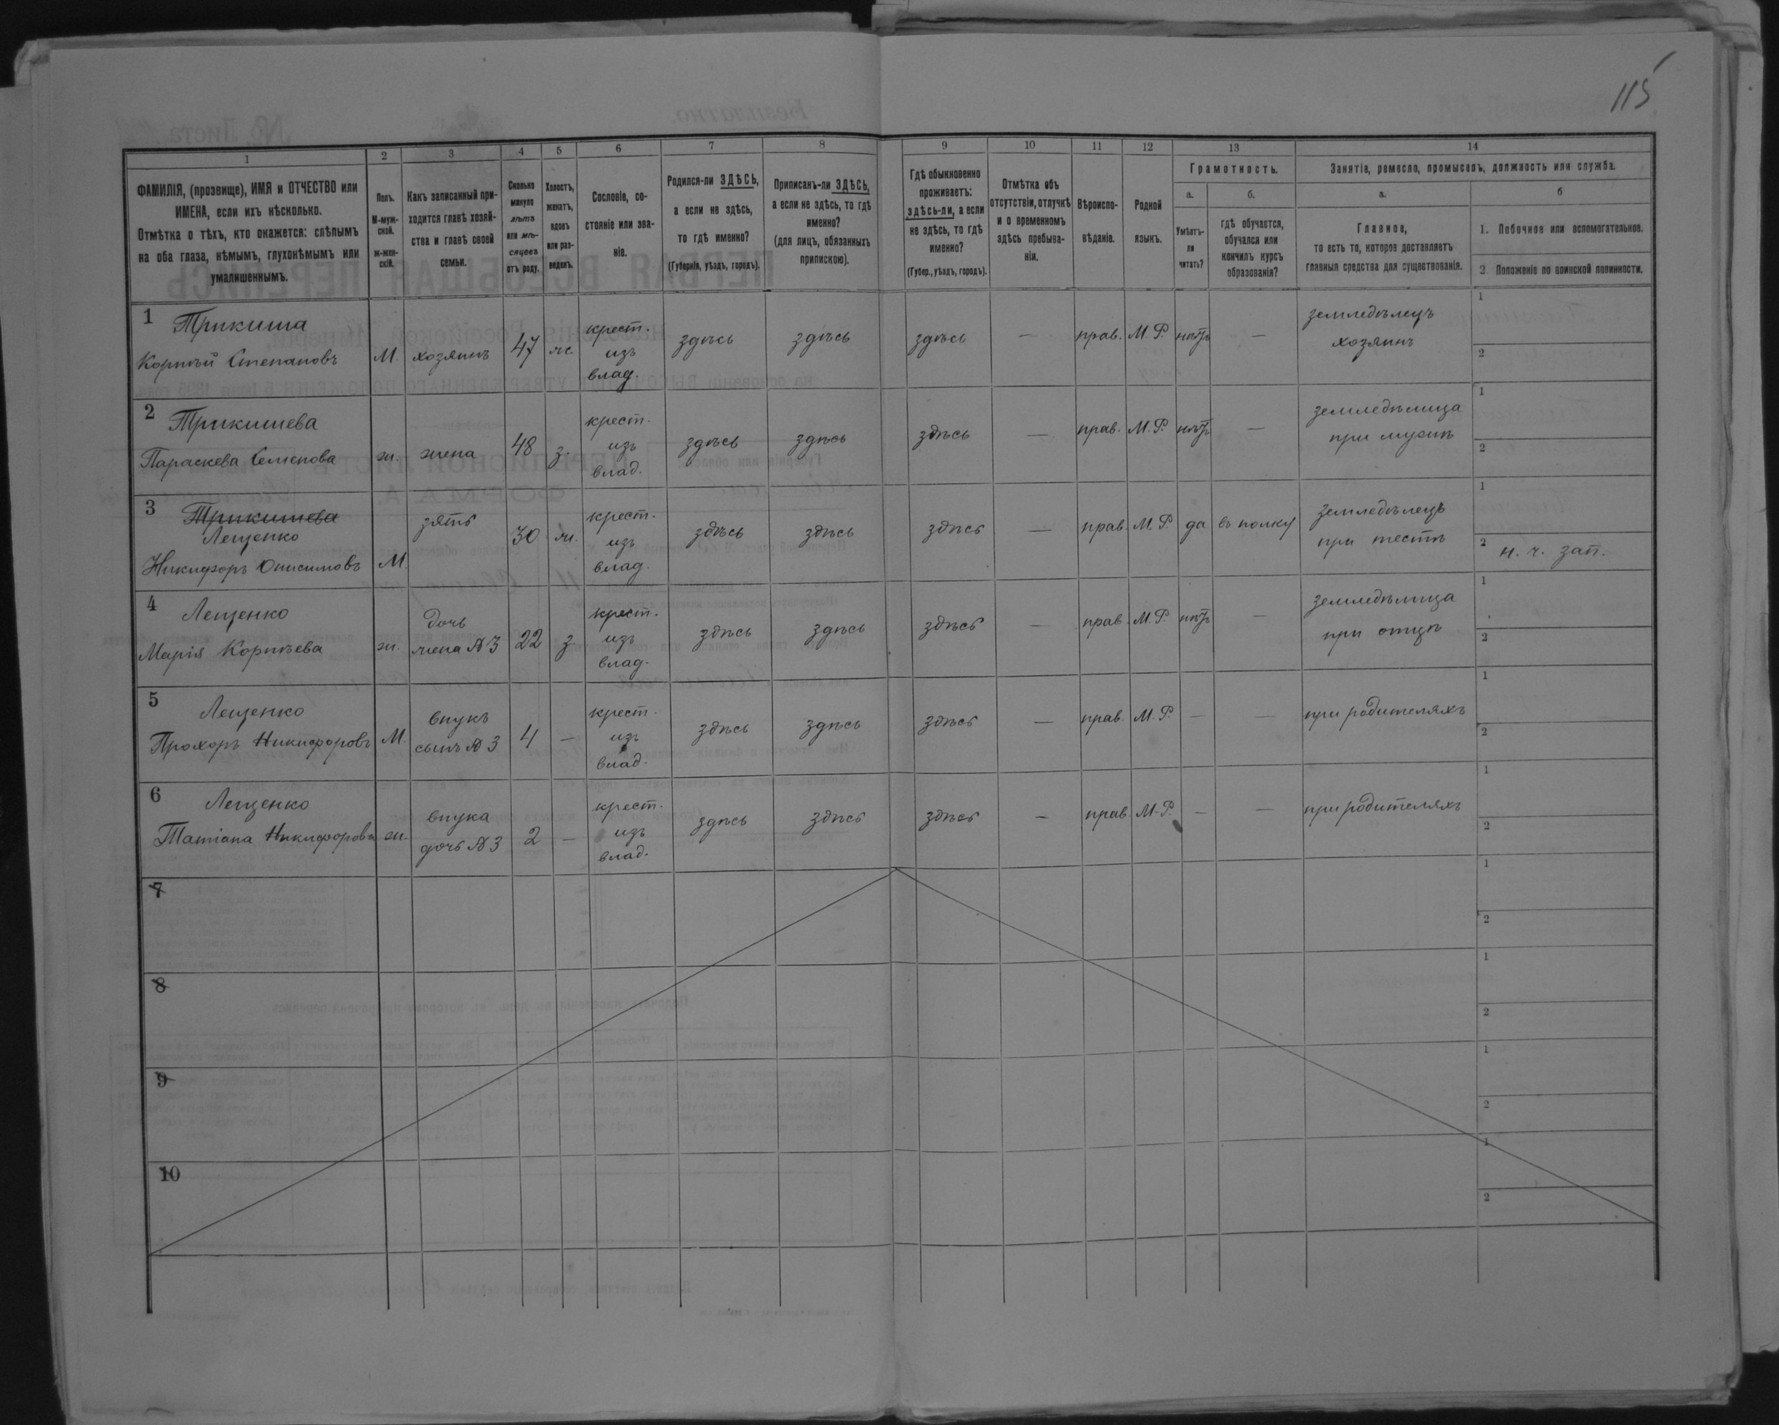 115
1
2
3
4
5
6
7
8
9
10
11
12
13
14
ФАМИЛІЯ, (прозвище), ИМЯ и ОТЧЕСТВО или
ИМЕНА, если ихъ нѣсколько.
Отмѣтка о тѣхъ, кто окажется: слѣпымъ
на оба глаза, нѣмымъ, глухонѣмымъ или
умалишеннымъ.
Полъ.
М-муж-
ской.
ж-жен-
скій.
Какъ записанный при-
ходится главѣ хозяй-
ства и главѣ своей
семьи.
Сколько
минуло
лѣтъ
или мѣ-
сяцевъ
отъ роду.
Холостъ,
женатъ,
вдовъ
или раз-
веденъ.
Сословіе, со-
стояніе или зва-
ніе.
Родился-ли ЗДѢСЬ,
а если не здѣсь,
то гдѣ именно?
(Губернія, уѣздъ, городъ).
Приписанъ-ли ЗДѢСЬ,
а если не здѣсь, то гдѣ
именно?
(для лицъ, обязанныхъ
припискою).
Гдѣ обыкновенно
проживаетъ:
здѣсь-ли, а если
не здѣсь, то гдѣ
именно?
(Губер., уѣздъ, городъ).
Отмѣтка объ
отсутствіи, отлучкѣ
и о временномъ
здѣсь пребыва-
ніи.
Вѣроиспо-
вѣданіе.
Родной
языкъ.
Грамотность.
а.
Умѣетъ-
ли
читать?
б.
гдѣ обучается,
обучался или
кончилъ курсъ
образованія?
Занятіе, ремесло, промыселъ, должность или служба.
а.
Главное,
то есть то, которое доставляетъ
главныя средства для существованія.
б
1. Побочное или вспомогательное.
2 Положеніе по воинской повинности.
1 Трикиша
Корнѣй Степановъ М. хозяинъ 47 ж. крест. изъ влад. здѣсь здѣсь здѣсь — прав. М.Р. нѣтъ — земледѣлецъ хозяинъ 1
2
2 Трикишева
Параскева Семенова ж. жена 48 з. крест. изъ влад. здѣсь здѣсь здѣсь — прав. М.Р. нѣтъ — земледѣлица при мужѣ 1
2
3 Трикишева
Лещенко
Никифоръ Онисимовъ М. зять 30 ж. крест. изъ влад. здѣсь здѣсь здѣсь — прав. М.Р. да въ полку земледѣлецъ при тестѣ 1
2 н. ч. зап.
4 Лещенко
Марія Корнѣева ж. дочь жена №3 22 з крест. изъ влад. здѣсь здѣсь здѣсь — прав. М.Р. нѣтъ — земледѣлица при отцѣ 1
2
5 Лещенко
Прохоръ Никифоровъ М. внукъ сынъ №3 4 — крест. изъ влад. здѣсь здѣсь здѣсь — прав. М.Р. — — при родителяхъ 1
2
6 Лещенко
Татіана Никифорова ж. внука дочь №3 2 — крест. изъ влад. здѣсь здѣсь здѣсь — прав. М.Р. — — при родителяхъ 1
2
7
1
2
8
1
2
9
1
2
10
1
2